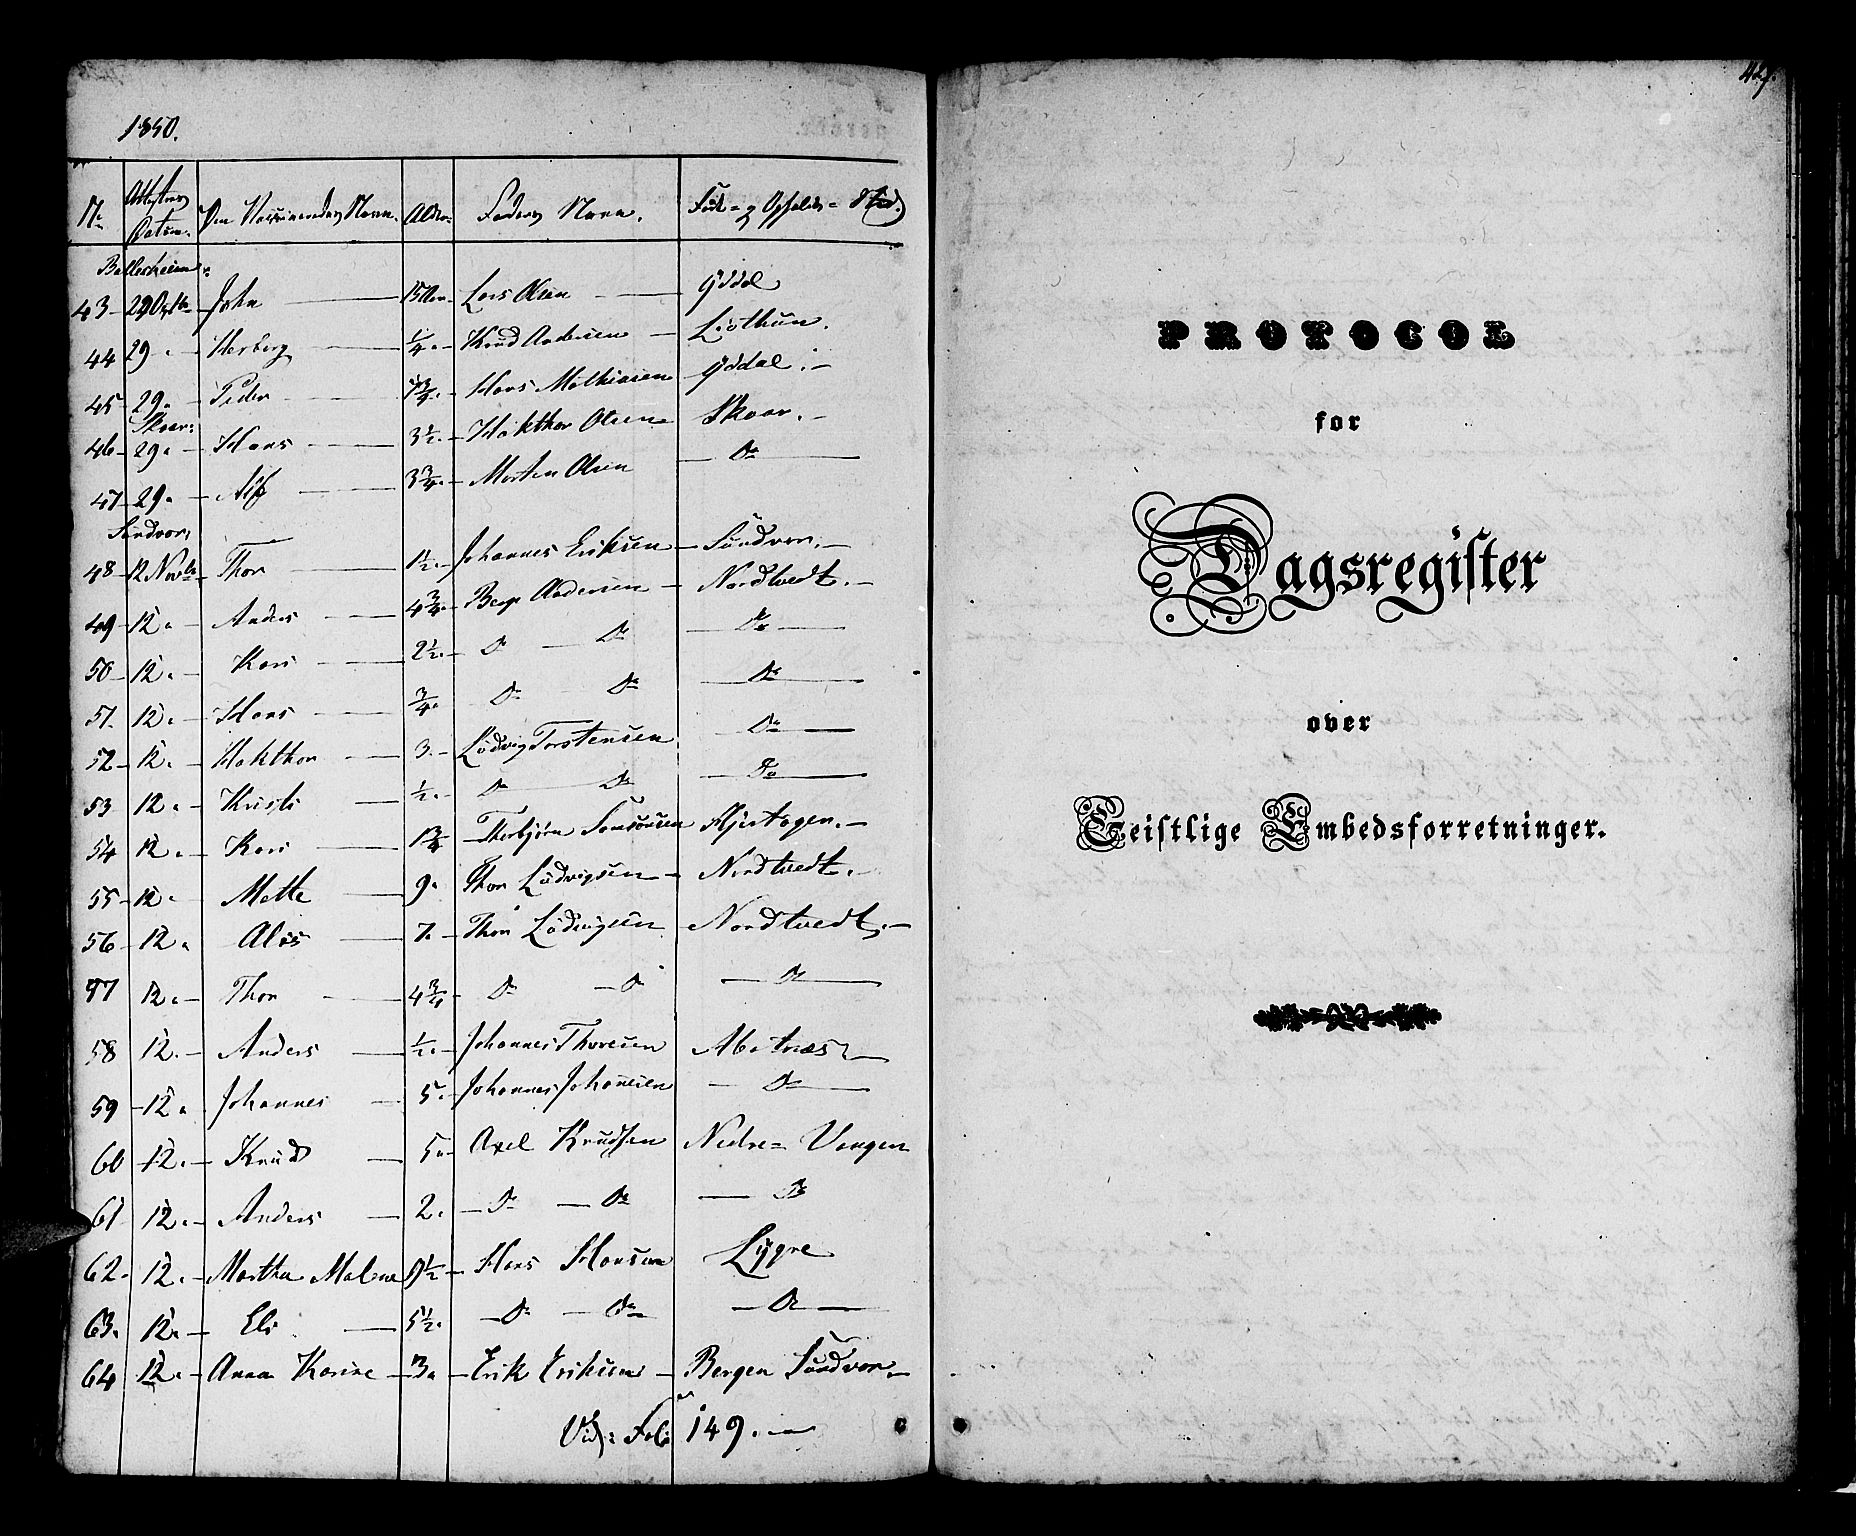 1850.
No Attestens Datum. Den Vaccineredes Navn. Alder. Faders Navn. Føde- og Opholds-Sted.
Ballesheim:
43 - 29 Octbr - John - 15 Aar - Lars Olsen - Yddal
44 29 " - Herborg - 1/4 " - Knud Andersen - Liothun.
45 - 29 " - Peder - 7 3/4 " - Hans Mathiasen Yddal.-
Skaar:
46 - 29 " - Hans - 3 1/2 " - Hakthor Olsen Skaar.-
47 - 29 " - Alf - 3 3/4 " - Morten Olsen - Do -
Sundvor:
48 - 12 Novbr - Thor - 1 1/2 " - Johannes Eriksen - Sundvor.-
49 - 12 " - Anders - 4 3/4 " - Berge Andersen - Nordtvedt.-
50 - 12 " - Kari - 2 1/2 " - Do - Do - Do -
51 - 12 " - Hans - 3/4 " Do - Do - Do -
52 - 12 " - Hakthor - 3 " - Ludvig Torstensen - Do -
53 - 12 " - Kristi - 1/2 " - Do - Do - Do -
54 - 12 " - Kari - 1 3/4 - Thorbjørn Samsonsen Hjertagen.-
55 - 12 " - Mette - 9 " Thor Ludvigsen - Nordtvedt.-
56 - 12 " Alis - 7 " - Thor Ludvigsen Nordtvedt.-
57 12 " - Thor - 4 3/4 - Do - Do - Do -
58 12 " - Anders - 1/2 " - Johannes Thoresen Abotnæs -
59 - 12 " Johannes - 5 " - Johannes Johansen - Do -
60 - 12 " - Knud - 5 " - Axel Knudsen Nedre-Vangen
61 - 12 " - Anders - 2 " - Do - Do - Do
62 - 12 " - Martha Malene 9 1/2 - Hans Hansen Lygre
63 " 12 " - Eli - 5 1/2 " - Do - Do - Do -
64 12 " - Anna Karine - 3 " - Erik Eriksen - Bergen Sundvor.-
Vid: Fol: 149.-
427.
PROTOCOL
for
Dagsregister
over
Geistlige Embedsforretninger.